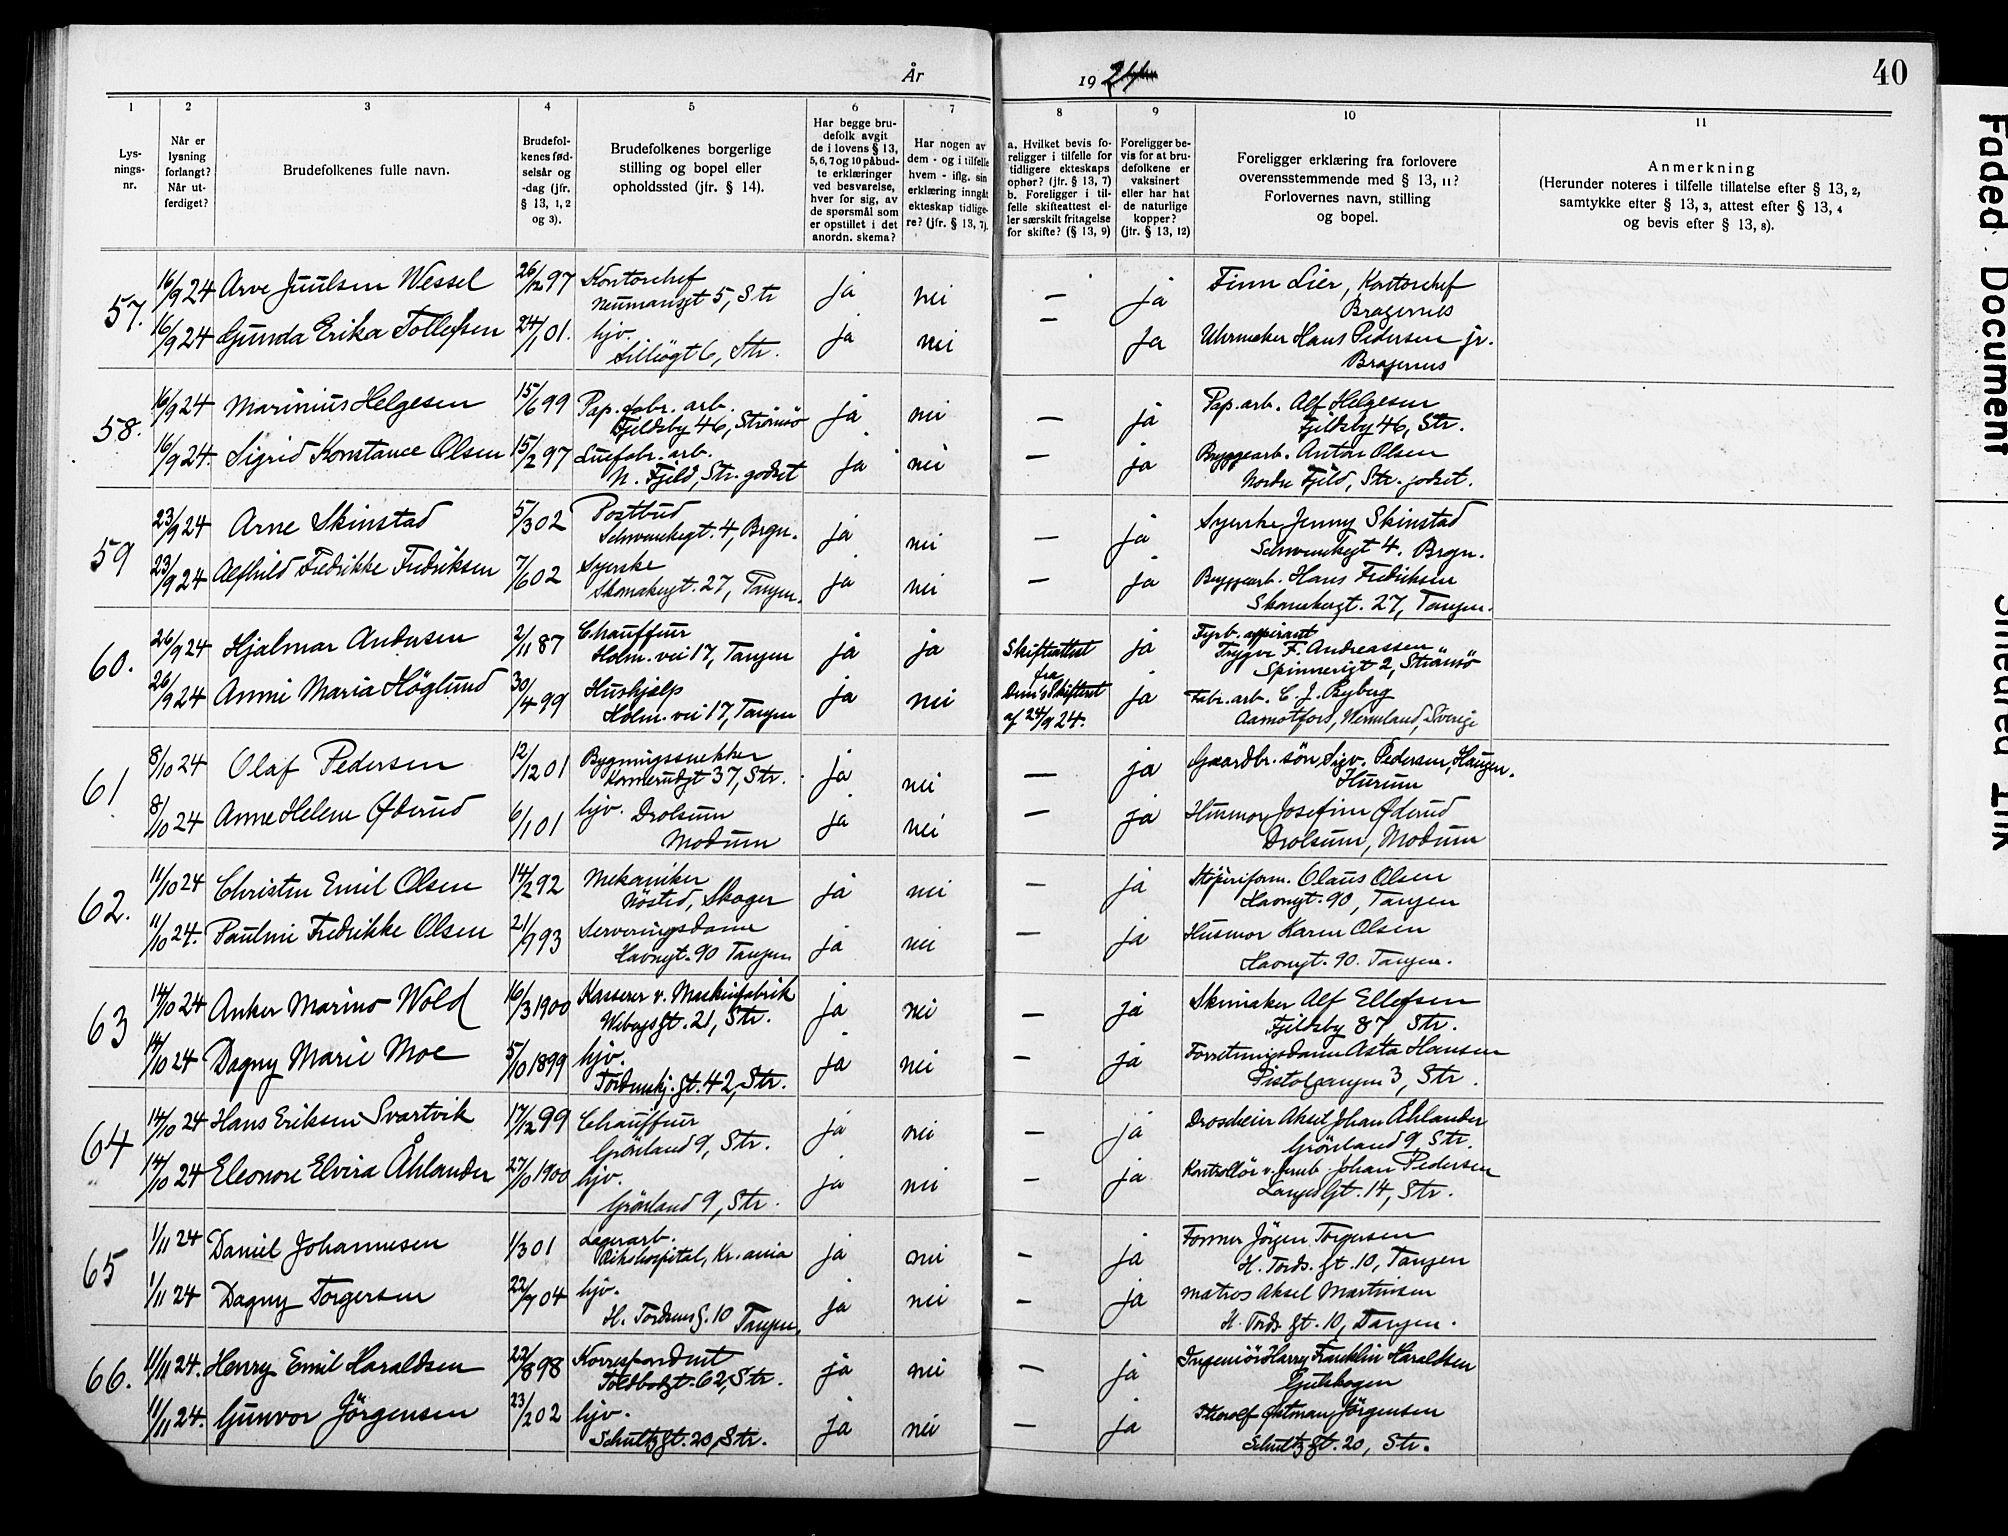 År 1924
40
1 2 3 4 5 6 7 8 9 10 11
Lys-
nings-
nr.
Når er
lysning
forlangt?
Når ut-
ferdiget?
Brudefolkenes fulle navn.
Brudefol-
kenes fød-
selsår og
-dag (jfr.
§ 13, 1, 2
og 3).
Brudefolkenes borgerlige
stilling og bopel eller
opholdssted (jfr. § 14).
Har begge bru-
defolk avgit
de i lovens § 13,
5, 6, 7 og 10 påbud-
te erklæringer
ved besvarelse,
hver for sig, av
de spørsmål som
er opstillet i det
anordn. skema?
Har nogen av
dem - og i tilfelle
hvem - iflg. sin
erklæring inngåt
ekteskap tidlige-
re? (jfr. § 13, 7).
a. Hvilket bevis fo-
religger i tilfelle for
tidligere ekteskaps
ophør? (jfr. § 13, 7)
b. Foreligger i til-
felle skifteattest el-
ler særskilt fritagelse
for skifte? (§ 13, 9)
Foreligger be-
vis for at bru-
defolkene er
vaksinert
eller har hat
de naturlige
kopper?
(jfr. § 13, 12)
Foreligger erklæring fra forlovere
overensstemmende med § 13, 11?
Forlovernes navn, stilling
og bopel.
Anmerkning
(Herunder noteres i tilfelle tillatelse efter § 13, 2,
samtykke efter § 13, 3, attest efter § 13, 4
og bevis efter § 13, 8).
57. 16/9 24 Arve Juulsen Wessel 26/12 97 Kontorchef ja nei — ja Finn Lier, Kontorchef
Neumansgt 5, Str Bragernes
16/9 24 Gunda Erika Tollefsen 24/1 01. hjv. ja nei — ja Uhrmaker Hans Pedersen jr.
Lilliögt 6, Str. Bragernes
58. 16/9 24 Marinius Helgesen 15/6 99 Pap. fabr. arb. ja nei — ja Pap. arb. Alf Helgesen
Fjeldsby 46, Strömsö Fjeldsby 46, Str.
16/9 24. Sigrid Konstance Olsen 15/2 97 Luefabr. arb. ja nei — ja Byggearb. Anton Olsen
N. Fjeld, Str. godset Nordre Fjeld, Str. godset.
59 23/9 24 Arne Skinstad 5/3 02 Postbud ja nei — ja Syerske Jenny Skinstad
Schwenckegt. 4, Brgn. Schwenckegt 4. Brgn.
23/9 24 Alfhild Fredrikke Fredriksen 7/6 02 Syerske ja nei — ja Byggearb. Hans Fredriksen
Skomakergt. 27, Tangen. Skomakergt. 27, Tangen.
60. 26/9 24 Hjalmar Andersen 2/11 87 Chauffeur ja ja Skifteattest ja Fyrb. aspirant
Holm. vei 17, Tangen fra Trygve F. Andreassen
Spinnerigt 2, Strömsö
26/9 24 Anni Maria Höglund 30/4 99 Hushjelp ja nei Dram's Skifteret ja Fabr. arb. C. J. Ryberg
Holm. vei 17, Tangen af 24/9 24. Aamotfors, Wermland, Sverige
61 8/10 24 Olaf Pedersen 12/12 01 Bygningssnekker ja nei — ja Gaardbr. sön Sigv. Pedersen, Haugen.
Konnerudgt 37, Str. Hurum
8/10 24 Anne Helene Öderud 6/1 01 hjv. Drolsum ja nei — ja Husmor Josefine Öderud
Modum Drolsum, Modum
62. 11/10 24 Christen Emil Olsen 14/2 92 Mekaniker ja nei — ja Stöperiform. Olaus Olsen
Nösted, Skoger Havnegt. 90, Tangen
11/10 24. Pauline Fredrikke Olsen 21/9 93 Serveringsdame ja nei — ja Husmor Karen Olsen
Havnegt. 90 Tangen Havnegt. 90. Tangen.
63 14/10 24 Anker Marino Wold 16/3 1900 Kasserer v. Maskinfabrik ja nei — ja Skimaker Alf Ellefsen
Wibegs gt. 21, Str. Fjeldsby 87, Str.
14/10 24 Dagny Marie Moe 5/10 1899 hjv. ja nei — ja Forretningsdame Asta Hansen
Tordenskj. gt. 42, Str. Pistolgangen 3, Str.
64 14/10 24 Hans Eriksen Svartvik 17/12 99 Chauffeur ja nei — ja Droscheeier Aksel Johan Åhlander
Grönland 9, Str. Grönland 9, Str.
14/10 24 Eleonore Elvira Åhlander 27/10 1900 hjv. ja nei — ja Kontrollör v. Johan Pedersen
Grönland 9, Str. Langes Gt. 14, Str.
65 1/11 24 Daniel Johannesen 1/3 01 Lagerarb. ja nei — ja Former Jörgen Torgersen
Rikshospital, Kr.ania H. Tords. gt. 10, Tangen
1/11 24 Dagny Torgersen 22/9 04 hjv. ja nei — ja Matros Aksel Martinsen
H. Tordens g. 10 Tangen. H. Tords. gt. 10, Tangen.
66. 11/11 24. Henry Emil Haraldsen 22/8 98 Korrespondent ja nei — ja Ingeniör Harry Franklin Haraldsen
Toldbodgt. 62, Str. Gulskogen
11/11 24. Gunvor Jörgensen 23/2 02 hjv. ja nei — ja Thorolf Östman Jörgensen
Schultz gt. 20, Str. Schultz gt. 20, Str.
Faded Document
Smeared Ink